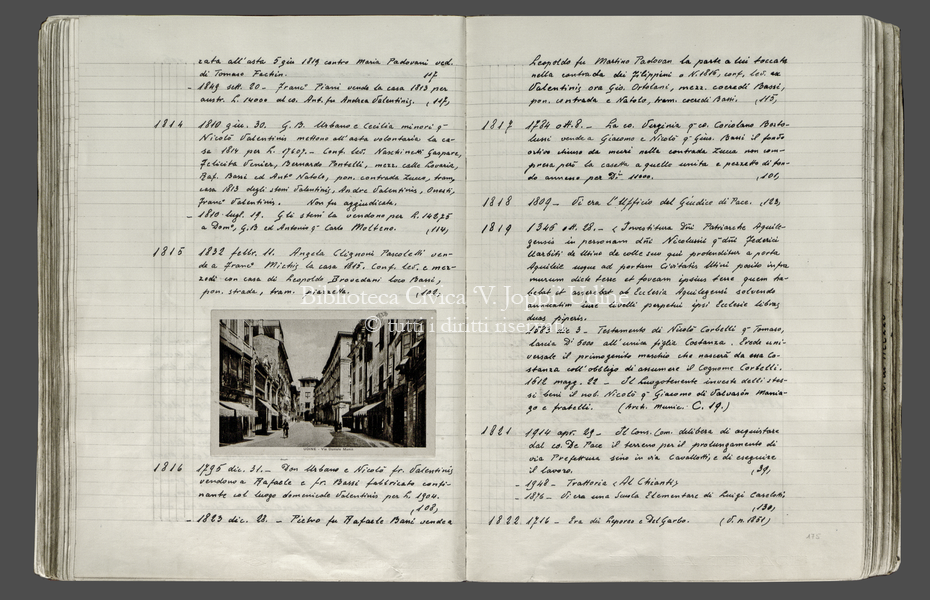 zata all'asta 5 giu 1819 contro Maria Padovani ved.
di Tomaso Fachin. 117
- 1849 sett. 20. - Franc° Piani vende la casa 1813 per
austr. L. 14000 al co. Ant. fu Andrea Valentinis. (117)
1814 1810 giu. 30. G.B. Urbano e Cecilia minori q.m
Nicolò Valentinis mettono all'asta volontaria la ca-
sa 1814 per L. 17207. - Conf. lev. Naschinetti Gaspare,
Felicita Venier, Bernardo Pontelli, mezz. calle Lovaria,
Raf. Bassi ed Ant° Natolo, pon. contrada Zucco, tram.
casa 1813 degli stessi Valentinis, Andrea Valentinis, Onesti,
Franc° Valentinis. Non fu aggiudicata.
- 1810 lugl. 19. Gli stessi la vendono per L. 14275
a Dom°, G.B. ed Antonio q. Carlo Molteno. (114)
1815 1832 febbr. 11. Angela Clignoni Pascoletti ven-
de a Franc° Mictig la casa 1815. Conf. lev. e mez-
zodì con casa di Leopoldo Brovedani loco Bassi,
pon. strada, tram. piazzetta. (102)
UDINE - Via Daniele Manin
1816 1795 dic. 31. - Don Urbano e Nicolò fr. Valentinis
vendono a Rafaele e fr. Bassi fabbricato confi-
nante col luogo domenicale Valentinis per L. 1904.
(108)
- 1823 dic. 28. - Pietro fu Rafaele Bassi vende a
Leopoldo fu Martino Padovan la parte a lui toccata
nella contrada dei Filippini a N. 1816, conf. lev. ex
Valentinis ora Gio. Ortolani, mezz. coeredi Bassi,
pon. contrada e Natolo, tram. coeredi Bassi. (115)
1817 1784 ott. 8. - La co. Verginia q. co. Coriolano Bosto-
lussi vende a Giacomo e Nicolò q. Gius. Bassi il fondo
ortivo chiuso da muri nella contrada Zucco non com-
presa però la casetta a quello unita e pezzetto di fon-
do annesso per D.ti 11000. (101)
1818 1809 - Vi era l'Ufficio del Giudice di Pace. (123)
1819 1345 ott. 28. - (Investitura dni Patriarche Aquile-
gensis in personam dni Nicolussii q. dni Federici
de Utino de colle suo qui protenditur a porta
Aquileie usque ad portam Civitatis Utini posito infra
murum dicte terre et foveam ipsius terre quem ta-
ab Ecclesia Aquilegensi solvendo
annuatim iure livelli perpetui ipsi Ecclesie libras
duas piperis.
3 - Testamento di Nicolò Corbelli q. Tomaso,
lascia D.ti 5000 all'unica figlia Costanza. Erede uni-
versale il primogenito maschio che nascerà da essa Co-
stanza coll'obbligo di assumere il cognome Corbelli.
1612 magg. 22 - Il Luogotenente investe delli stes-
si beni il nob. Nicolò q. Giacomo di Valvasòn Mania-
go e fratelli. (Arch. Munic. C. 19.)
1821 1914 apr. 29 - Il Cons. Com. delibera di acquistare
dal co. De Pace il terreno per il prolungamento di
via Prefettura sino in via Cavallotti, e di eseguire
il lavoro. (39)
- 1948 - Trattoria (Al Chianti)
- 1876 - Vi era una Scuola Elementare di Luigi Casolotti,
(130)
1822 1716 - Era dei Leporeo e Del Garbo. (V. n. 1861)
175
Biblioteca Civica 'V. Joppi' Udine
© tutti i diritti riservati